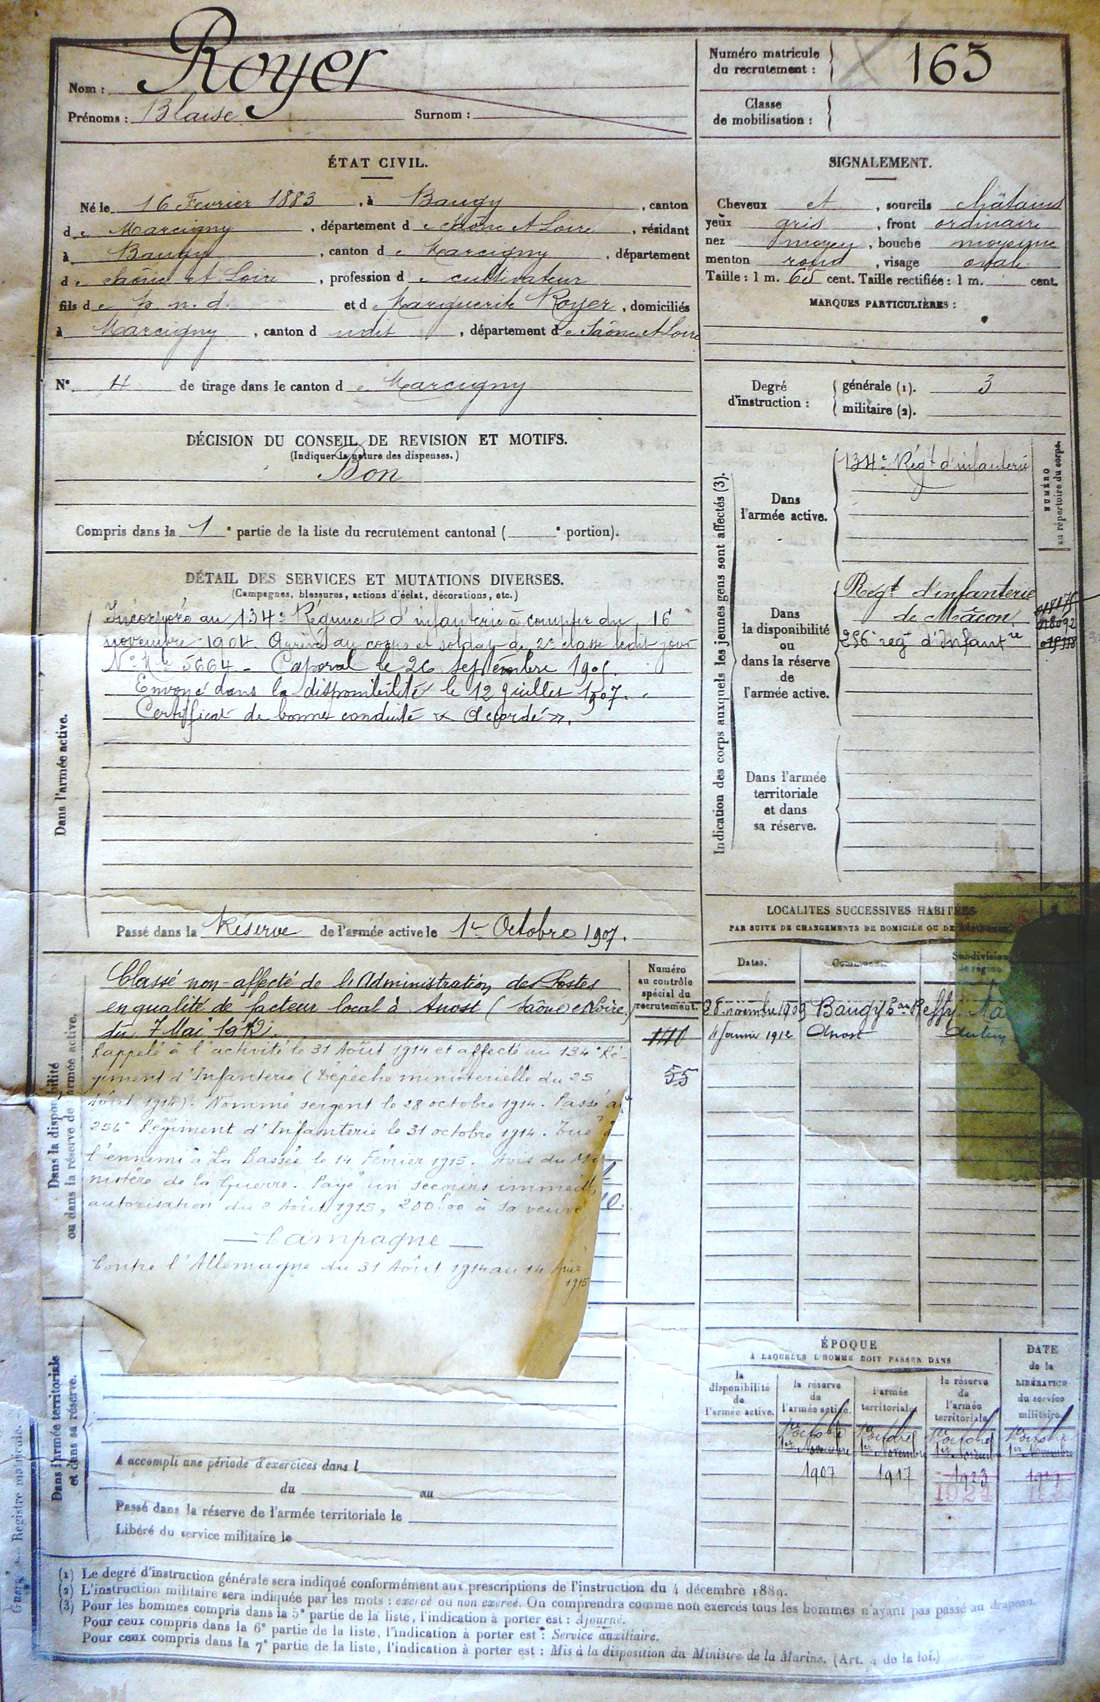 Nom : Royer
Prénoms : Blaise Surnom :
Numéro matricule du recrutement : 163
Classe de mobilisation :
ÉTAT CIVIL.
Né le 16 Fevrier 1883, à Baugy, canton
d e Marcigny, département d e Saône et Loire, résidant
à Baugy, canton d e Marcigny, département
d e Saône et Loire, profession d e cultivateur
fils d e p. n. d. et d e Marguerite Royer, domiciliés
à Marcigny, canton d udit, département d e Saône et Loire
SIGNALEMENT.
Cheveux et, sourcils châtains
yeux gris, front ordinaire
nez moyen, bouche moyenne
menton rond, visage ovale
Taille : 1 m. 65 cent. Taille rectifiée : 1 m. cent.
MARQUES PARTICULIÈRES :
N° 4 de tirage dans le canton d e Marcigny
Degré d'instruction : générale (1). 3
militaire (2).
DÉCISION DU CONSEIL DE REVISION ET MOTIFS.
(Indiquer la nature des dispenses.)
Bon
Compris dans la 1e partie de la liste du recrutement cantonal ( e portion).
DÉTAIL DES SERVICES ET MUTATIONS DIVERSES.
(Campagnes, blessures, actions d'éclat, décorations, etc.)
Dans l'armée active.
Incorporé au 134e Régiment d'infanterie à compter du 16
novembre 1904. Arrivé au corps et soldat de 2e classe ledit jour
5664. Caporal le 26 septembre 1905
Envoyé dans la disponibilité le 12 juillet 1907.
Certificat de bonne conduite « Accordé ».
Passé dans la Réserve de l'armée active le 1er Octobre 1907.
Indication des corps auxquels les jeunes gens sont affectés (3).
NUMÉRO au répertoire du corps.
Dans l'armée active.
134e Régt d'infanterie
Dans la disponibilité ou dans la réserve de l'armée active.
Régt d'infanterie
de Mâcon
256e reg d'Infantrie
Dans l'armée territoriale et dans sa réserve.
LOCALITÉS SUCCESSIVES HABITÉES
PAR SUITE DE CHANGEMENTS DE DOMICILE OU DE RÉSIDENCE
Dates. Communes. Subdivision de région
28 novembre 1909 Baugy
4 Janvier 1912 Anost Autun
Dans la disponibilité ou dans la réserve de l'armée active.
Numéro au contrôle spécial du recrutement.
55
Classé non-affecté de l'Administration des Postes
en qualité de facteur local à Anost (Saône et Loire)
du 7 Mai 1912
Rappelé à l'activité le 31 Août 1914 et affecté au 134e Ré-
giment d'Infanterie (Dépêche ministérielle du 25
Août 1914). Nommé sergent le 28 octobre 1914. Passé au
256e Régiment d'Infanterie le 31 octobre 1914. Tué à
l'ennemi à La Bassée le 14 Février 1915. Avis du Mi-
nistère de la Guerre. Payé un secours immédt,
autorisation du 2 Août 1915, 200f00 à sa veuve
Campagne
Contre l'Allemagne du 31 Août 1914 au 14 Fév
1915
ÉPOQUE
À LAQUELLE L'HOMME DOIT PASSER DANS
la disponibilité de l'armée active.
la réserve de l'armée active.
l'armée territoriale.
la réserve de l'armée territoriale.
DATE de la LIBÉRATION du service militaire.
1er octobre 1er octobre 1er octobre 1er octobre
1er Novembre 1er Novembre 1er Novembre 1er Novembre
1907 1917 1923 1929
Dans l'armée territoriale et dans sa réserve.
A accompli une période d'exercices dans l
du au
Passé dans la réserve de l'armée territoriale le
Libéré du service militaire le
Registre matricule.
(1) Le degré d'instruction générale sera indiqué conformément aux prescriptions de l'instruction du 4 décembre 1889.
(2) L'instruction militaire sera indiquée par les mots : exercé ou non exercé. On comprendra comme non exercés tous les hommes n'ayant pas passé au drapeau.
(3) Pour les hommes compris dans la 5e partie de la liste, l'indication à porter est : Ajourné.
Pour ceux compris dans la 6e partie de la liste, l'indication à porter est : Service auxiliaire.
Pour ceux compris dans la 7e partie de la liste, l'indication à porter est : Mis à la disposition du Ministre de la Marine. (Art. 4 de la loi.)